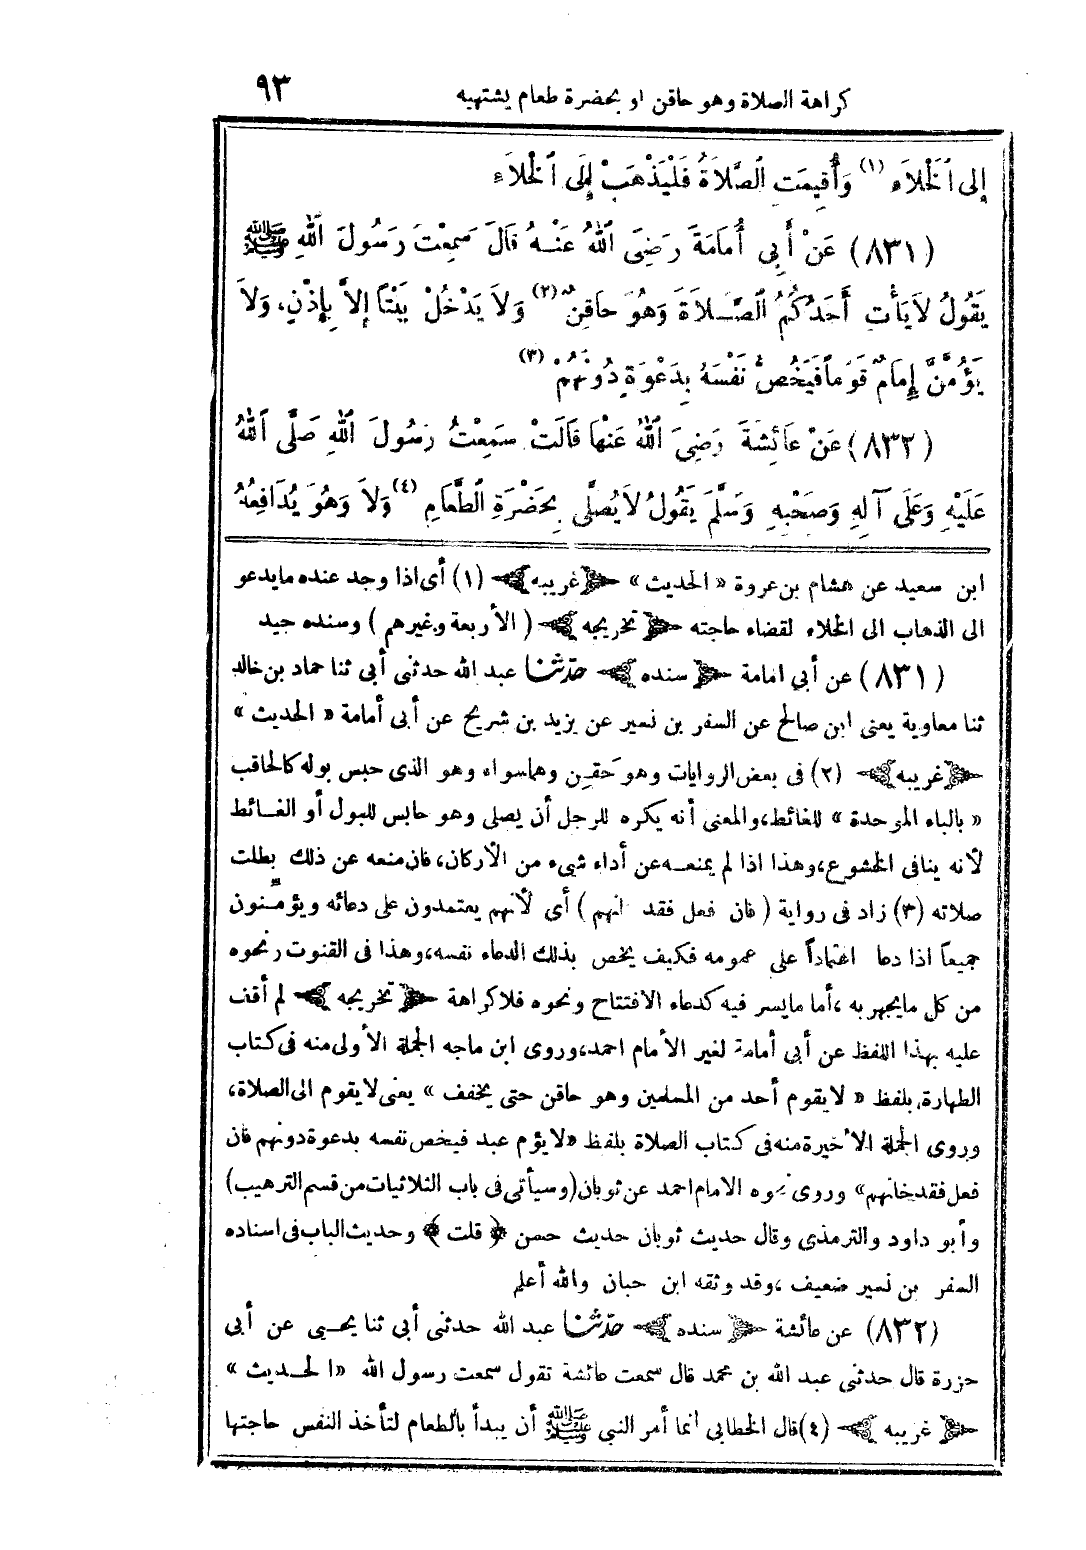 كراهة الصلاة وهو حاقن او بحضرة طعام يشتهيه ٩٣
إِلى ٱلْخَلاَءِ (١) وَأُقِيمَتِ ٱلصَّلاَةُ فَلْيَذْهَبْ إِلَى ٱلْخَلاَءِ
(٨٣١) عَنْ أَبِي أُمَامَةَ رَضِيَ ٱللهُ عَنْهُ قَالَ سَمِعْتُ رَسُولَ ٱللهِ ﷺ
يَقُولُ لاَ يَأْتِ أَحَدُكُمُ ٱلصَّلاَةَ وَهُوَ حَاقِنٌ (٢) وَلاَ يَدْخُلْ بَيْتًا إِلاَّ بِإِذْنٍ، وَلاَ
يَؤُمَّنَّ إِمَامٌ قَوْمًا فَيَخُصَّ نَفْسَهُ بِدَعْوَةٍ دُونَهُمْ (٣)
(٨٣٢) عَنْ عَائِشَةَ رَضِيَ ٱللهُ عَنْهَا قَالَتْ سَمِعْتُ رَسُولَ ٱللهِ صَلَّى ٱللهُ
عَلَيْهِ وَعَلَى آلِهِ وَصَحْبِهِ وَسَلَّمَ يَقُولُ لاَ يُصَلَّى بِحَضْرَةِ ٱلطَّعَامِ (٤) وَلاَ وَهُوَ يُدَافِعُهُ
ابن سعيد عن هشام بن عروة « الحديث » ﴿غريبه﴾ (١) أى اذا وجد عنده ما يدعو
الى الذهاب الى الخلاء لقضاء حاجته ﴿تخريجه﴾ ( الأربعة وغيرهم ) وسنده جيد
(٨٣١) عن أبي امامة ﴿سنده﴾ حدّثنا عبد الله حدثنى أبى ثنا حماد بن خالد
ثنا معاوية يعنى ابن صالح عن السفر بن نسير عن يزيد بن شريح عن أبى أمامة « الحديث »
﴿غريبه﴾ (٢) فى بعض الروايات وهو حَقِن وهما سواء وهو الذى حبس بوله كالحاقب
« بالباء الموحدة » للغائط، والمعنى أنه يكره للرجل أن يصلى وهو حابس للبول أو الغائط
لأنه ينافى الخشوع، وهذا اذا لم يمنعه عن أداء شىء من الأركان، فان منعه عن ذلك بطلت
صلاته (٣) زاد فى رواية ( فان فعل فقد خانهم ) أى لأنهم يعتمدون على دعائه ويؤمّنون
جميعاً اذا دعا اعتماداً على عمومه فكيف يخص بذلك الدعاء نفسه، وهذا فى القنوت ونحوه
من كل ما يجهر به ، أما ما يسر فيه كدعاء الافتتاح ونحوه فلا كراهة ﴿تخريجه﴾ لم أقف
عليه بهذا اللفظ عن أبى أمامة لغير الأمام احمد، وروى ابن ماجه الجملة الأولى منه فى كتاب
الطهارة بلفظ « لا يقوم أحد من المسلمين وهو حاقن حتى يخفف » يعنى لا يقوم الى الصلاة،
وروى الجملة الأخيرة منه فى كتاب الصلاة بلفظ « لا يؤم عبد فيخص نفسه بدعوة دونهم فان
فعل فقد خانهم» وروى نحوه الامام احمد عن ثوبان (وسيأتى فى باب الثلاثيات من قسم الترهيب)
وأبو داود والترمذى وقال حديث ثوبان حديث حسن ﴿قلت﴾ وحديث الباب فى اسناده
السفر بن نسير ضعيف ، وقد وثقه ابن حبان والله أعلم
(٨٣٢) عن عائشة ﴿سنده﴾ حدّثنا عبد الله حدثنى أبى ثنا يحيى عن أبى
حزرة قال حدثنى عبد الله بن محمد قال سمعت عائشة تقول سمعت رسول الله «الحديث »
﴿غريبه﴾ (٤) قال الخطابى انما أمر النبي ﷺ أن يبدأ بالطعام لتأخذ النفس حاجتها